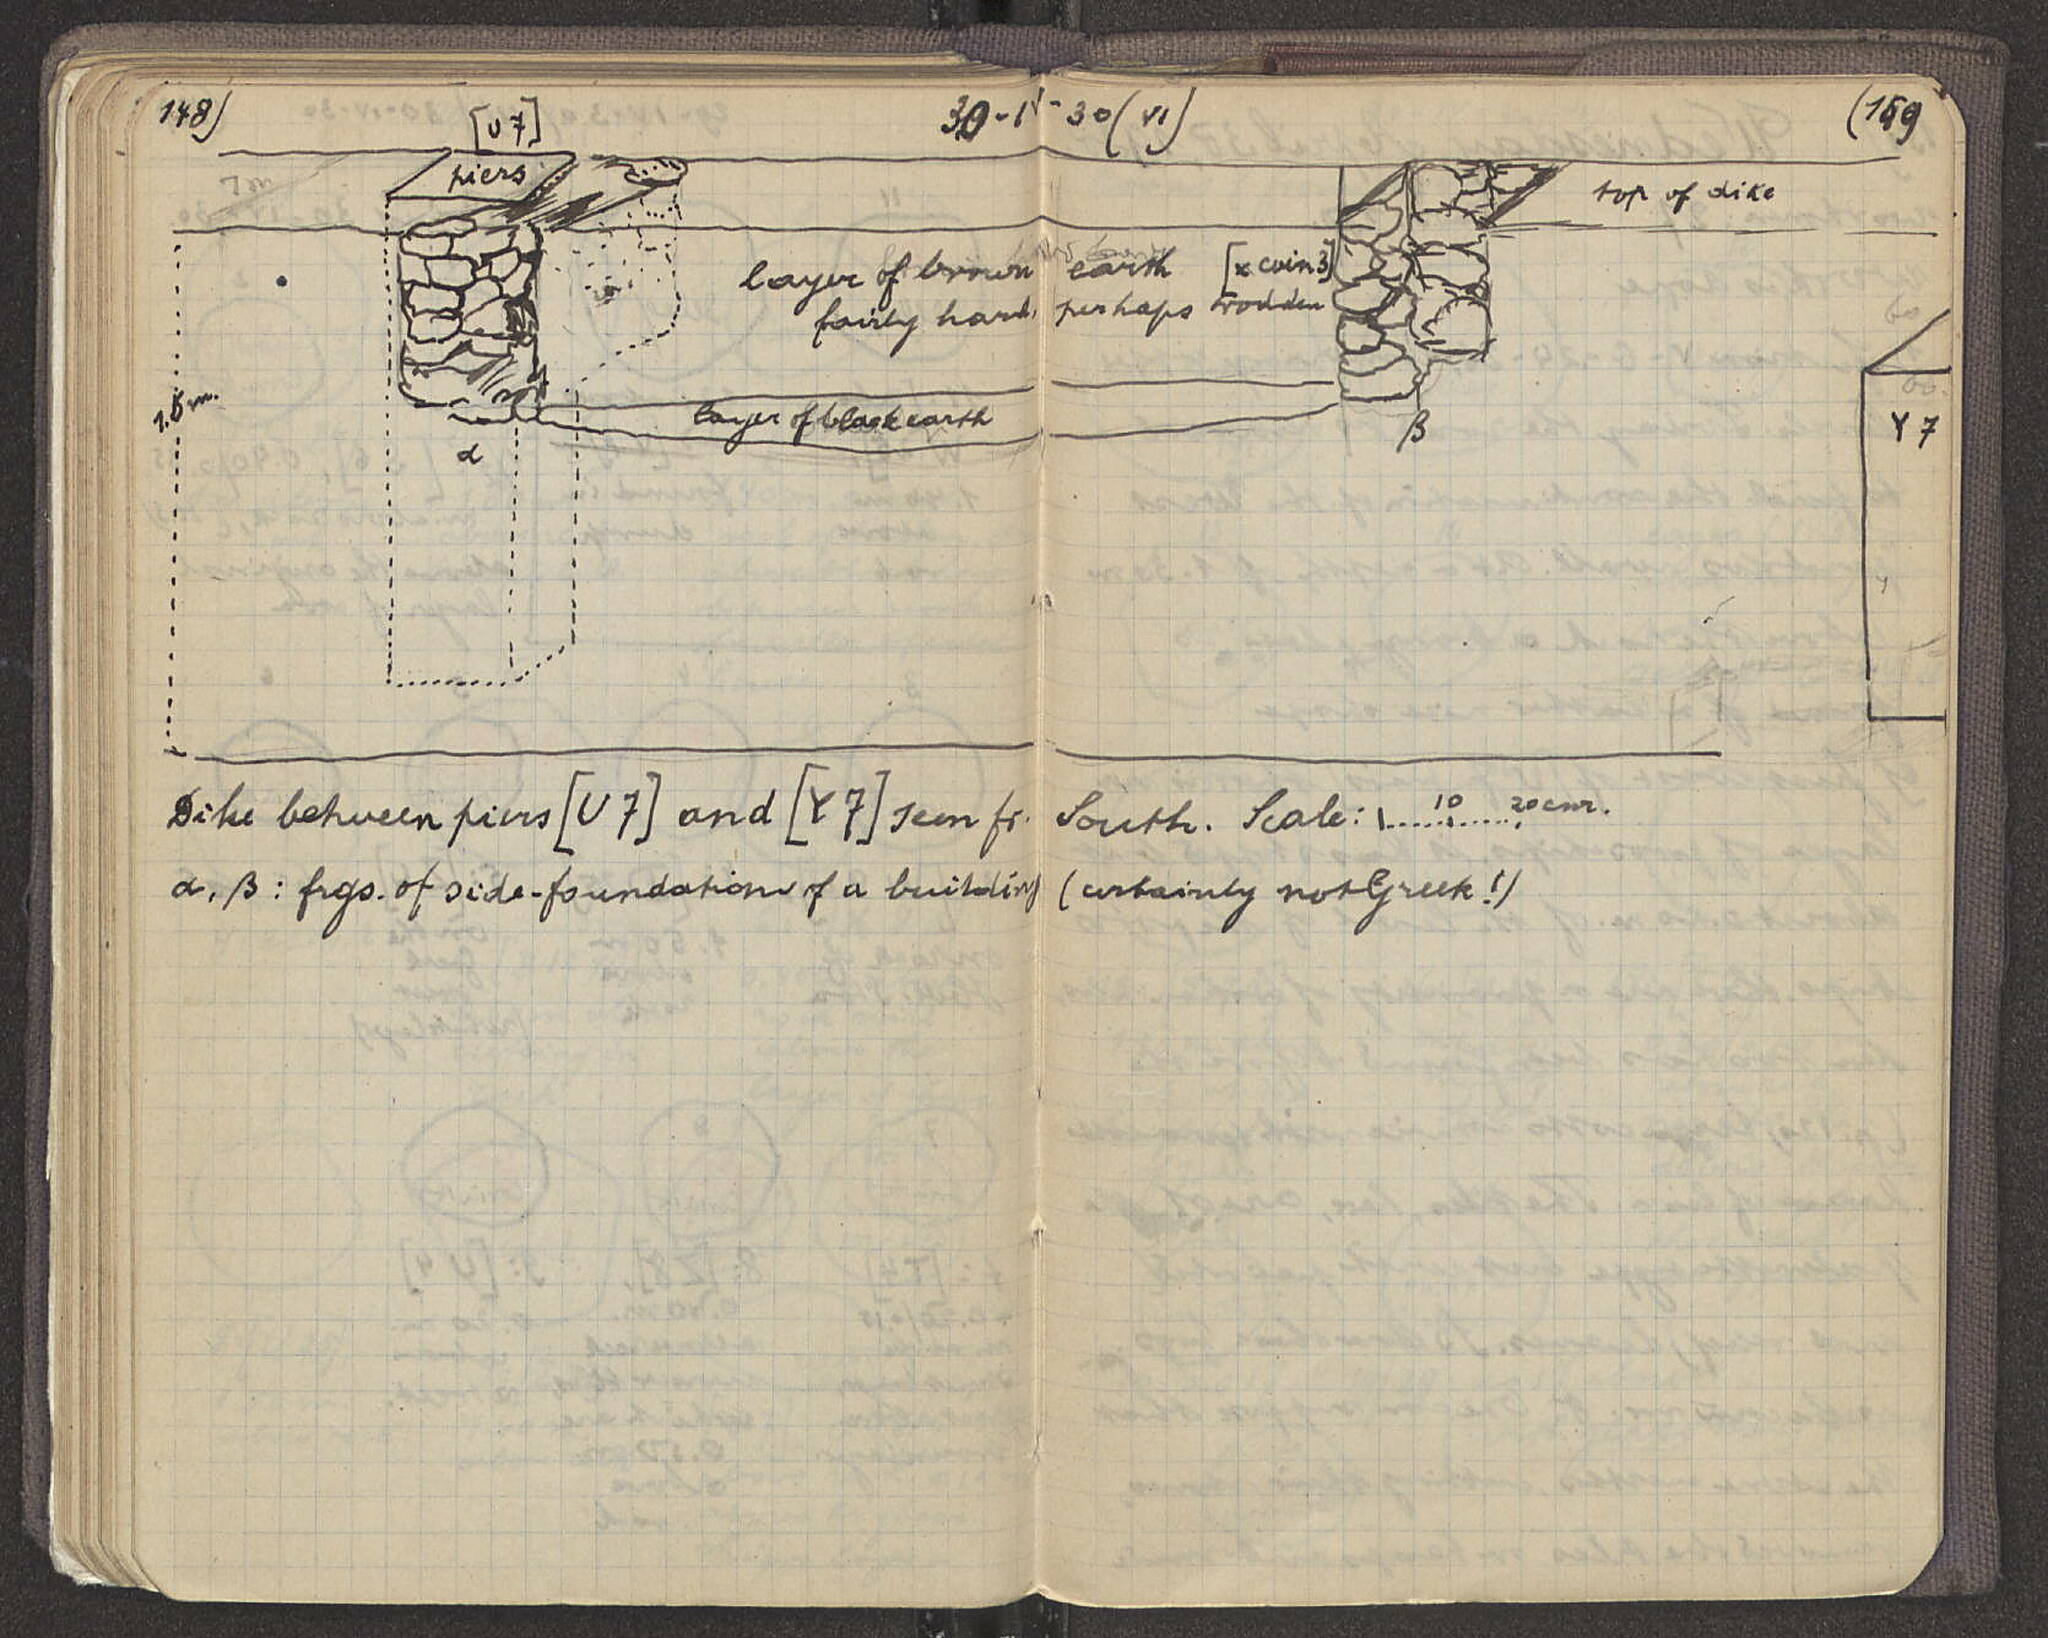 148)
30-IV-30 (VI)
(149
[U 7]
piers
top of dike
layer of brown earth [x coin 3]
fairly hard, perhaps trodden
1.5 m.
layer of black earth
α
β
Y 7
Dike between piers [U 7] and [Y 7] seen fr. South. Scale: 10 20 cm.
α, β: frgs. of side-foundation of a building (certainly not Greek!)